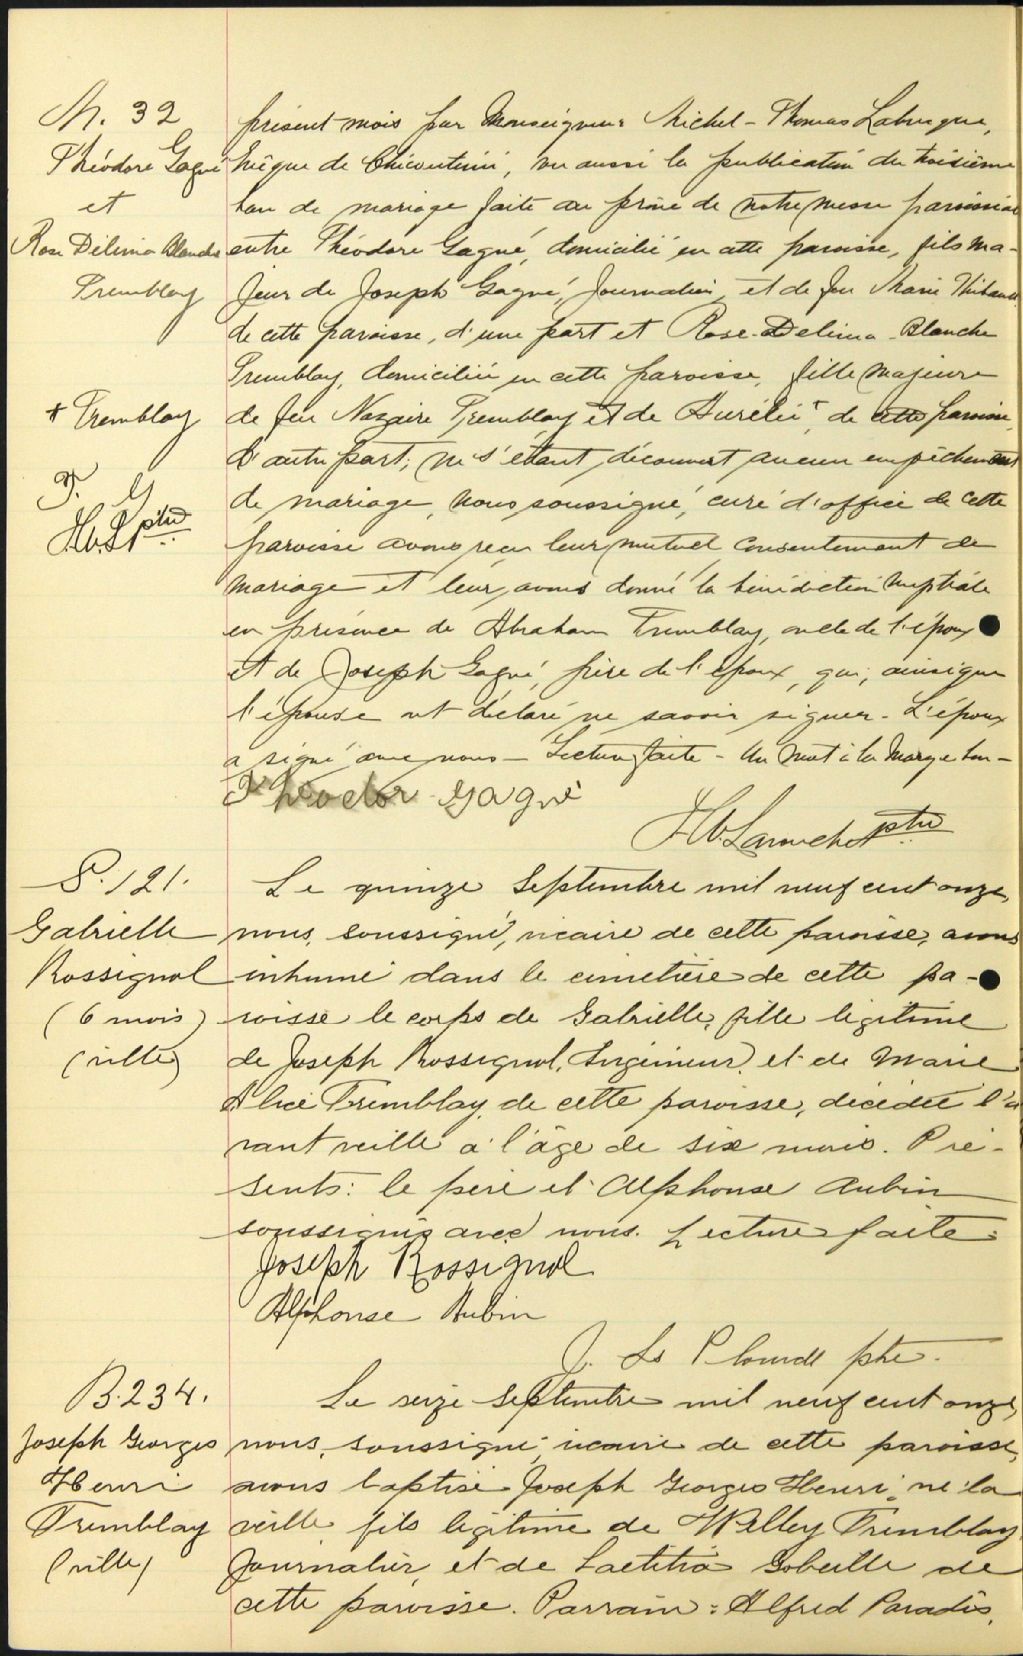 M. 32
Théodore Gagné
et
Rose Délima Blanche
Tremblay
+ Tremblay
T. G
H.W.L ptre
présent mois par Monseigneur Michel-Thomas Labrecque,
Evêque de Chicoutimi, vu aussi la publication du troisième
ban de mariage faite au prône de notre messe paroissiale
entre Théodore Gagné, domicilié en cette paroisse, fils ma-
jeur de Joseph Gagné, Journalier, et de feu Marie Thibault
de cette paroisse, d'une part et Rose-Delima-Blanche
Tremblay, domiciliée en cette paroisse, fille majeure
de feu Nazaire Tremblay et de Aurélie + de cette paroisse,
d'autre part; ne s'étant découvert aucun empêchement
de mariage, nous soussigné, curé d'office de cette
paroisse avons reçu leur mutuel consentement de
mariage et leur avons donné la bénédiction nuptiale
en présence de Abraham Tremblay, oncle de l'époux
et de Joseph Gagné, frère de l'époux, qui, ainsi que
l'épouse ont déclaré ne savoir signer. L'époux
a signé avec nous - Lecture faite - Un mot à la marge bon -
Théodor Gagné
H W Larouche ptre
S. 121.
Gabrielle
Rossignol
(6 mois)
(ville)
Le quinze Septembre mil neuf cent onze,
nous, soussigné, vicaire de cette paroisse, avons
inhumé dans le cimetière de cette pa-
roisse le corps de Gabrielle, fille légitime
de Joseph Rossignol, Ingénieur, et de Marie
Alice Tremblay de cette paroisse, décédée l'a
vant veille à l'âge de six mois. Pré-
sents: le père et Alphonse Aubin
soussignés avec nous. Lecture faite.
Joseph Rossignol
Alphonse Aubin
J. Ls Plourde ptre.
B. 234.
Joseph Georges
Henri
Tremblay
(ville)
Le seize Septembre mil neuf cent onze,
nous, soussigné, vicaire de cette paroisse,
avons baptisé Joseph Georges Henri, né la
veille, fils légitime de Willey Tremblay,
Journalier, et de Laetitia Gobeille de
cette paroisse. Parrain: Alfred Paradis,